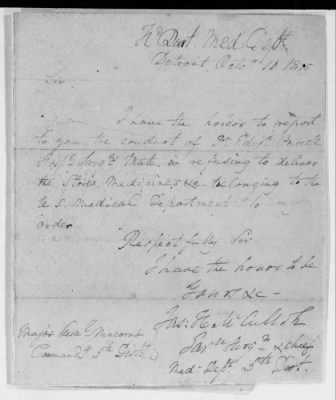 Hd Qurt Med Dept.
Detroit Octor 10 1815
I have the honor to report
to you the conduct of Dr Edwd Purcell
Hospl Surgns Mate in refusing to deliver
the Stores Medicines &c belonging to the
U S. Medical Department to my
order
Respectfully Sir
I have the honor to be
Your obt &c -
Jas: H. McCulloh
Garrn Surgn & chief
Med: Dept. 5th Dist.
Major Genl Macomb
Command'g 5th Distc